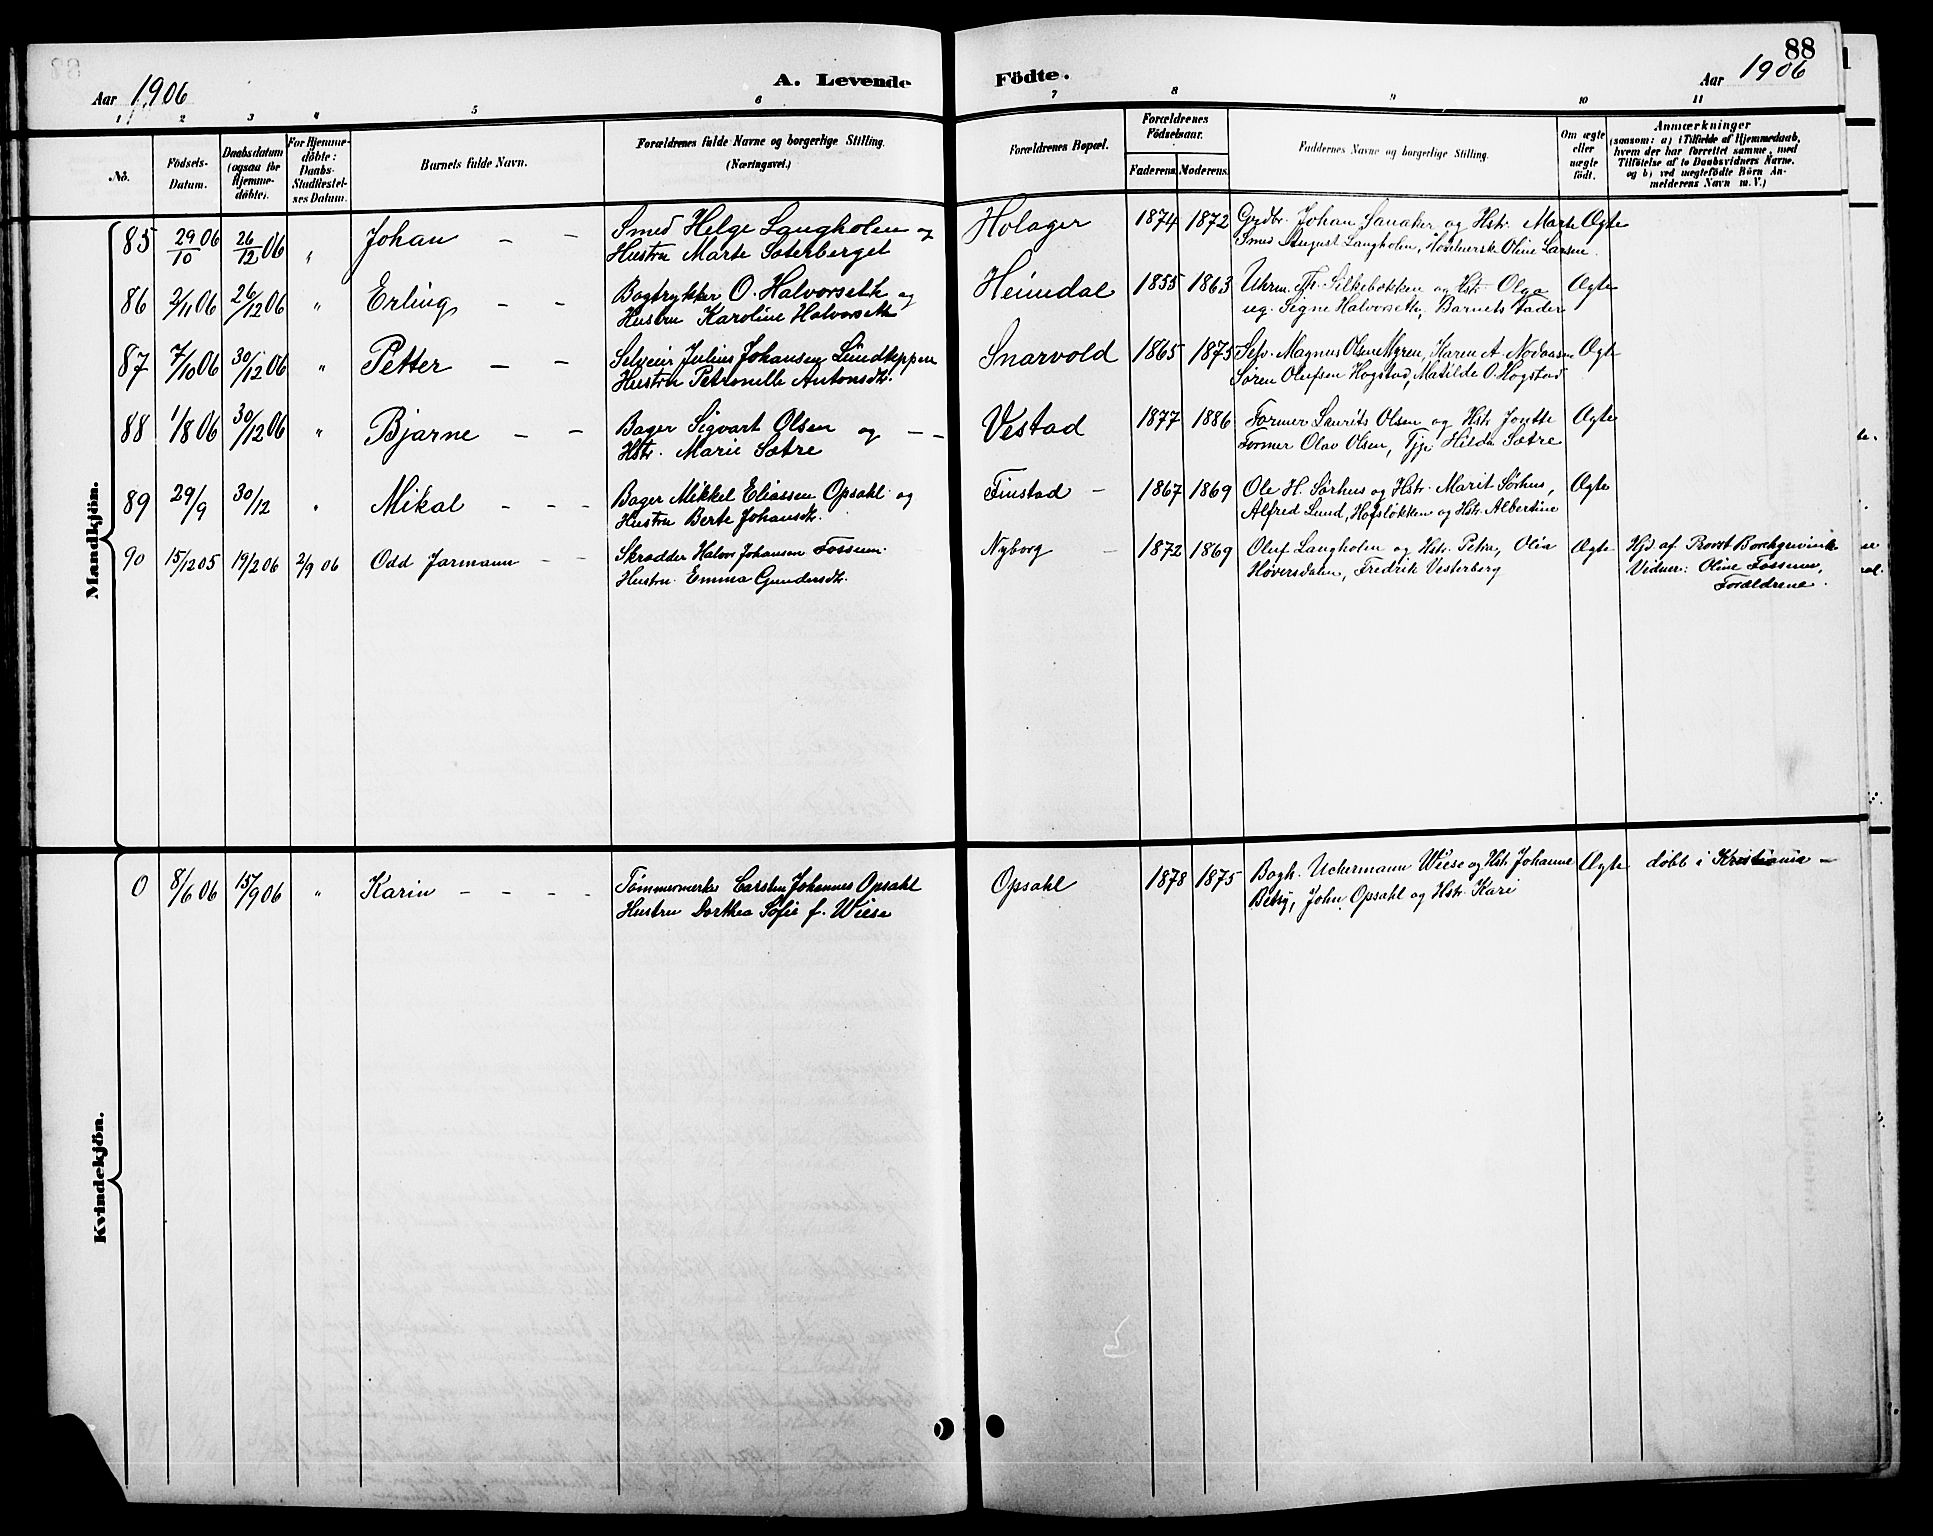 88
Aar 1906
A. Levende Födte.
Aar 1906
1 2 3 4 5 6 7 8 9 10 11
No.
Födsels-Datum.
Daabsdatum (ogsaa for Hjemmedöbte).
For Hjemmedöbte: Daabs-Stadfestelses Datum.
Barnets fulde Navn.
Forældrenes fulde Navne og borgerlige Stilling. (Næringsvei.)
Forældrenes Bopæl.
Forældrenes Födselsaar.
Faderens. Moderens.
Faddernes Navne og borgerlige Stilling.
Om ægte eller uægte födt.
Anmærkninger
(saasom: a) i Tilfælde af Hjemmedaab,
hvem der har forrettet samme, med
Tilföielse af to Daabsvidners Navne.
og b) ved uægtefödte Börn An-
melderens Navn m. V.)
Mandkjön.
85 29/10 06 26/12 06 " Johan — — Smed Helge Langholen og Holager 1874 1872 Grdbr. Johan Sanaker og Hstr. Marte Ægte
Hustru Marte Sæterberget Smed August Langholen, Oline Larsen.
86 2/11 06 26/12 06 " Erling — — Bogtrykker O. Halvorseth og Heimdal 1855 1863 Uhrm. Th. Silkebækken og Hstr. Olga Ægte
Hustru Karoline Halvorseth ug. Signe Halvorseth, Barnets Fader
87 7/10 06 30/12 06 " Petter — — Selveier Julius Johansen Lundkeppen Snarvold 1865 1873 Sep. Magnus Olsen Myren, Karen A. Nodaasen Ægte
Hustru Petronelle Antonsdtr. Søren Olufsen Hogstad, Matilde O. Hogstad
88 1/8 06 30/12 06 " Bjarne — — Bager Sigvart Olsen og — — Vestad 1877 1886 Former Laurits Olsen og Hstr. Jontte Ægte
Hstr. Marie Sætre Former Olav Olsen, Tjp. Hilda Sætre
89 29/9 30/12 " Mikal — — — Bager Mikkel Eliassen Opsahl og Finstad — 1867 1869 Ole H. Sørhus og Hstr. Marit Sørhus, Ægte
Hustru Berte Johansdtr. Alfred Lund, Hofsløkken og Hstr. Albertine
90 15/12 05 19/2 06 2/9 06 Odd Jarmann — — Skrædder Halvor Johansen Fossum. Nyborg — 1872 1869 Oluf Langholen og Hstr. Petra, Olia Ægte Hjd. af. Provst Borchgrevink
Hustru. Emma Gundersdtr. Høversdalen, Fredrik Vesterberg Vidner: Oline Fossum,
Forældrene.
Kvindekjön.
0 8/6 06 15/9 06 " Karin — — — — Tømmermerker Carsten Johannes Opsahl Opsahl 1878 1875 Bogh. Uckermann Wiese og Hstr. Johanne Ægte døbt i Kristiania —
Hustru Dorthea Sofie f. Wiese Betsy, John Opsahl og Hstr. Kari